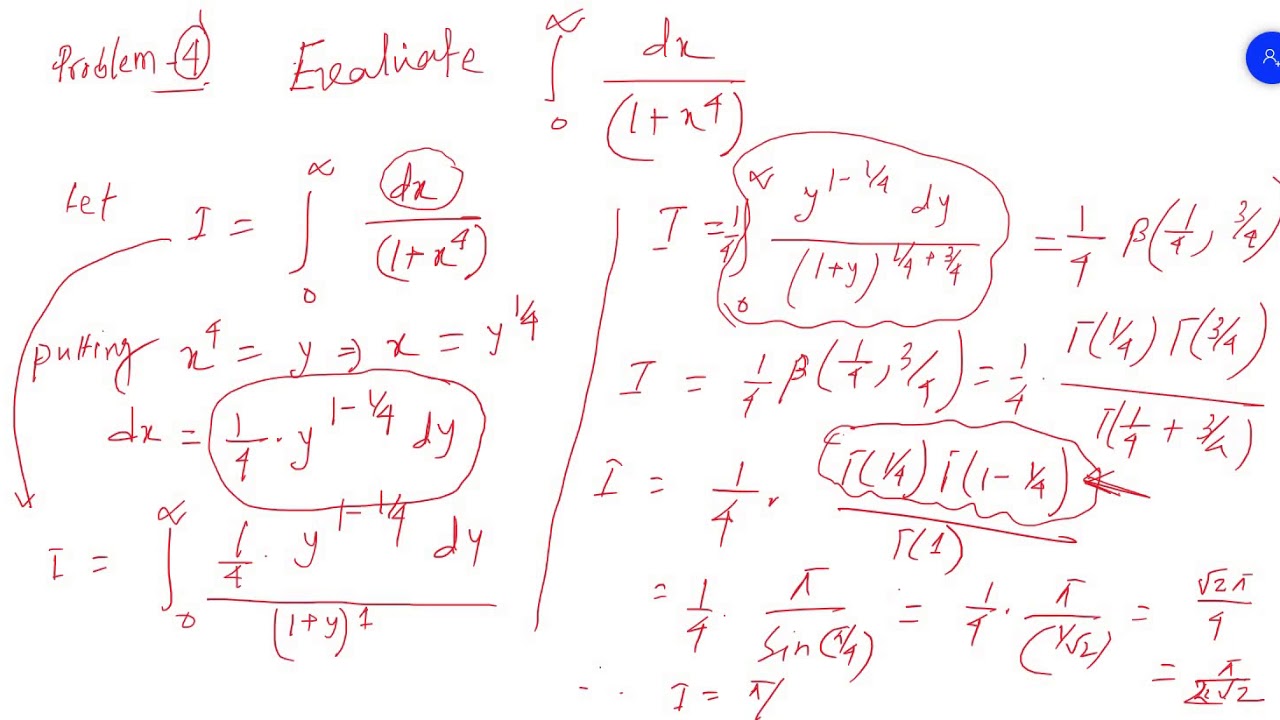 Problem-4 Evaluate ∫₀^∞ dx/(1+x⁴)
Let I = ∫₀^∞ dx/(1+x⁴)
putting x⁴ = y ⇒ x = y^{1/4}
dx = 1/4 · y^{1-1/4} dy
I = ∫₀^∞ (1/4 · y^{1-1/4} dy)/(1+y)^1
I = 1/4 ∫₀^∞ (y^{1-1/4} dy)/(1+y)^{1/4+3/4} = 1/4 β(1/4, 3/4)
I = 1/4 β(1/4, 3/4) = 1/4 · Γ(1/4) Γ(3/4)/Γ(1/4 + 3/4)
I = 1/4 · Γ(1/4) Γ(1-1/4)/Γ(1)
= 1/4 · π/Sin(π/4) = 1/4 · π/(1/√2) = √2π/4
= π/2√2
∴ I = π/